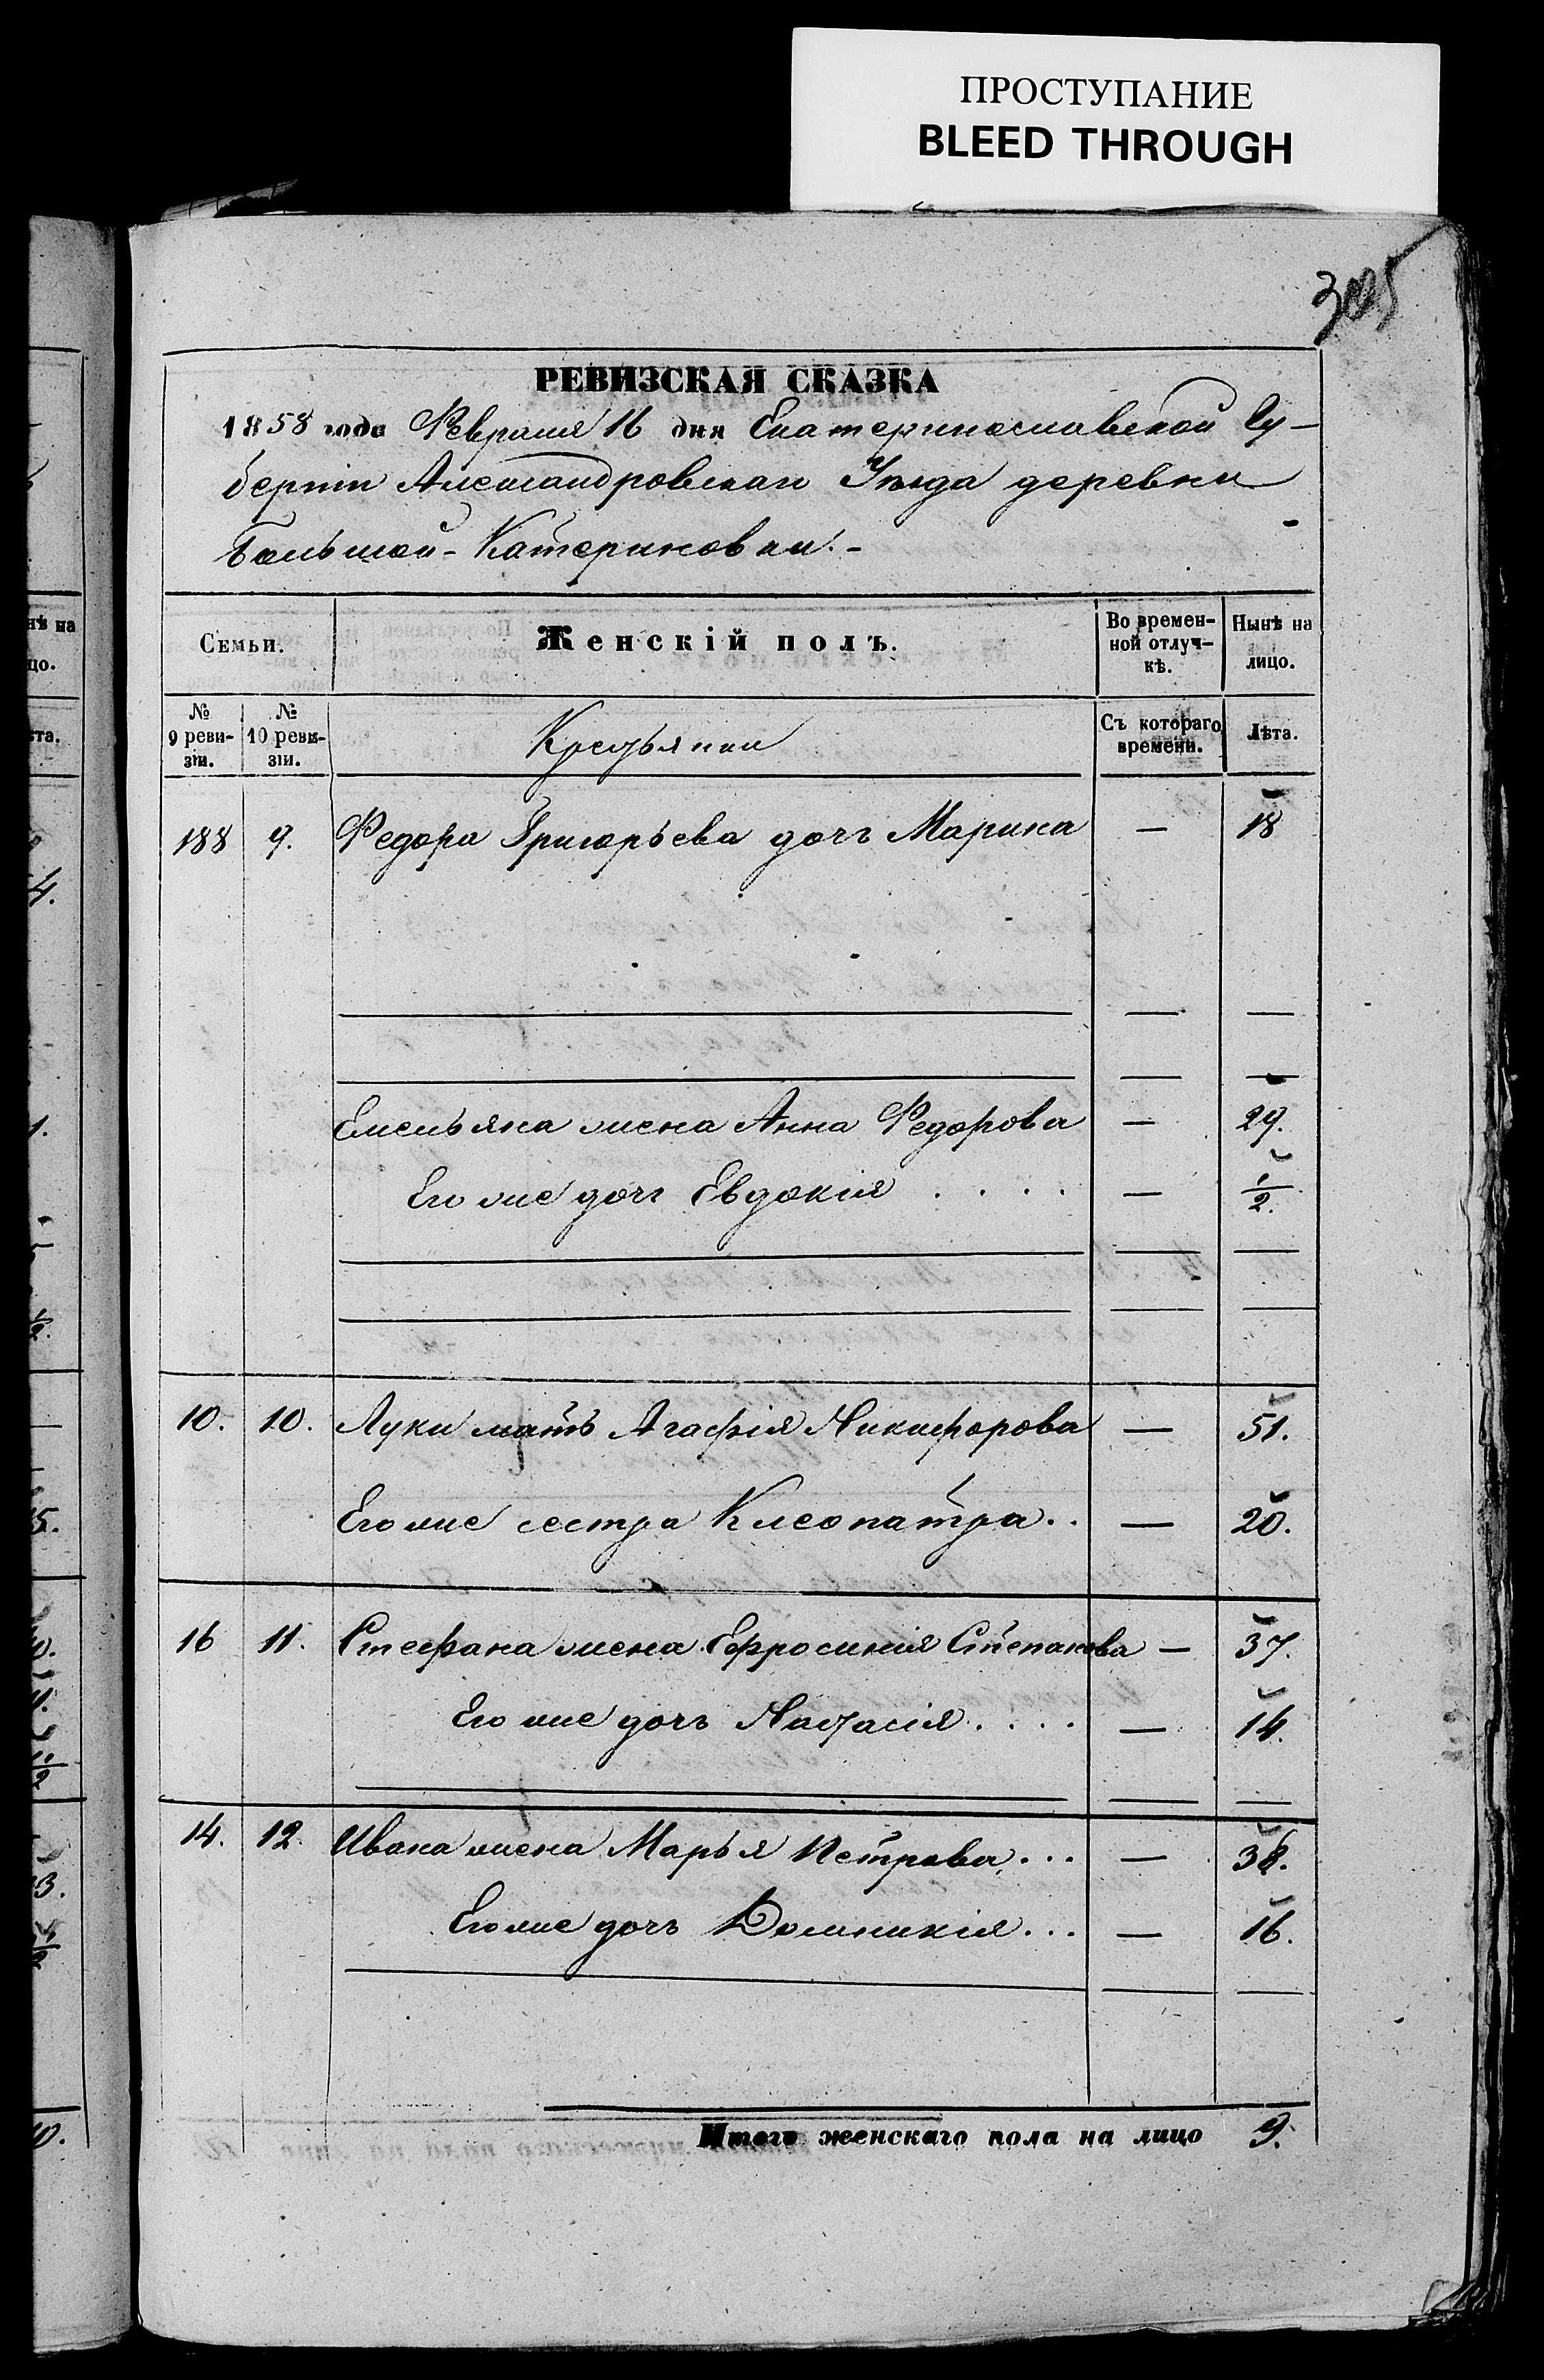 ПРОСТУПАНИЕ
BLEED THROUGH
305
РЕВИЗСКАЯ СКАЗКА
1858 года Февраля 16 дня Екатеринославской Гу-
берніи Александровскаго Уѣзда деревни
Большой-Катериновки.-
Семьи. Женскій полъ. Во времен- Нынѣ на
ной отлуч- лицо.
кѣ.
№ № Крестьянки Съ котораго Лѣта.
9 реви- 10 реви- времени.
зіи. зіи.
188 9. Федора Григорьева дочь Марина — 18
— —
— —
Емельяна жена Анна Федорова — 29.
Его же дочь Евдокія . . . . — 1/2.
— —
— —
10. 10. Луки мать Агафія Никифорова — 51.
Его же сестра Клеопатра . . — 20.
16 11. Стефана жена Ефросинія Степанова — 37.
Его же дочь Настасія . . . . — 14.
— —
14. 12. Ивана жена Марья Петрова . . . — 38.
Его же дочь Домникія . . . — 16.
— —
Итого женскаго пола на лицо 9.